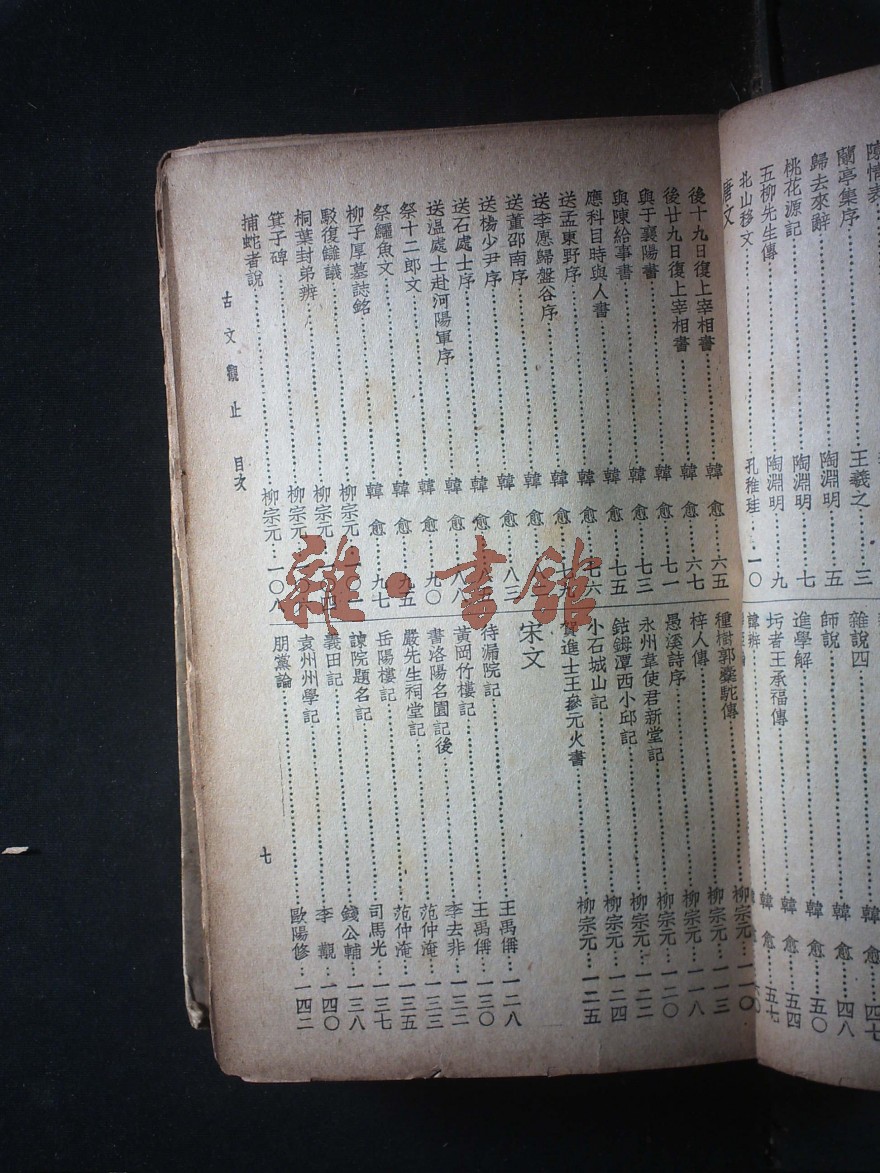 陳情表
蘭亭集序……王羲之…三
歸去來辭……陶淵明…五
桃花源記……陶淵明…七
五柳先生傳……陶淵明…九
北山移文……孔稚珪…一〇
唐文
雜說四……韓愈…四七
師說……韓愈…四八
進學解……韓愈…五〇
圬者王承福傳……韓愈…五四
諱辯……韓愈…五七
後十九日復上宰相書……韓愈…六五
後廿九日復上宰相書……韓愈…六七
與于襄陽書……韓愈…七一
與陳給事書……韓愈…七三
應科目時與人書……韓愈…七五
送孟東野序……韓愈…七六
送李愿歸盤谷序……韓愈…七九
送董邵南序……韓愈
送楊少尹序……韓愈…八三
送石處士序……韓愈…八五
送溫處士赴河陽軍序……韓愈…八八
祭十二郎文……韓愈…九〇
祭鱷魚文……韓愈…九五
柳子厚墓誌銘……韓愈…九七
駁復讎議……柳宗元…一〇一
桐葉封弟辨……柳宗元…一〇四
箕子碑……柳宗元…一〇六
捕蛇者說……柳宗元…一〇八
種樹郭橐駝傳……柳宗元…一一〇
梓人傳……柳宗元…一一三
愚溪詩序……柳宗元…一一八
永州韋使君新堂記……柳宗元…一二〇
鈷鉧潭西小邱記……柳宗元…一二二
小石城山記……柳宗元…一二四
賀進士王參元火書……柳宗元…一二五
宋文
待漏院記……王禹偁…一二八
黃岡竹樓記……王禹偁…一三〇
書洛陽名園記後……李去非…一三二
嚴先生祠堂記……范仲淹…一三三
岳陽樓記……范仲淹…一三五
諫院題名記……司馬光…一三七
義田記……錢公輔…一三八
袁州州學記……李覯…一四〇
朋黨論……歐陽修…一四二
古文觀止 目次
七
雜·書館